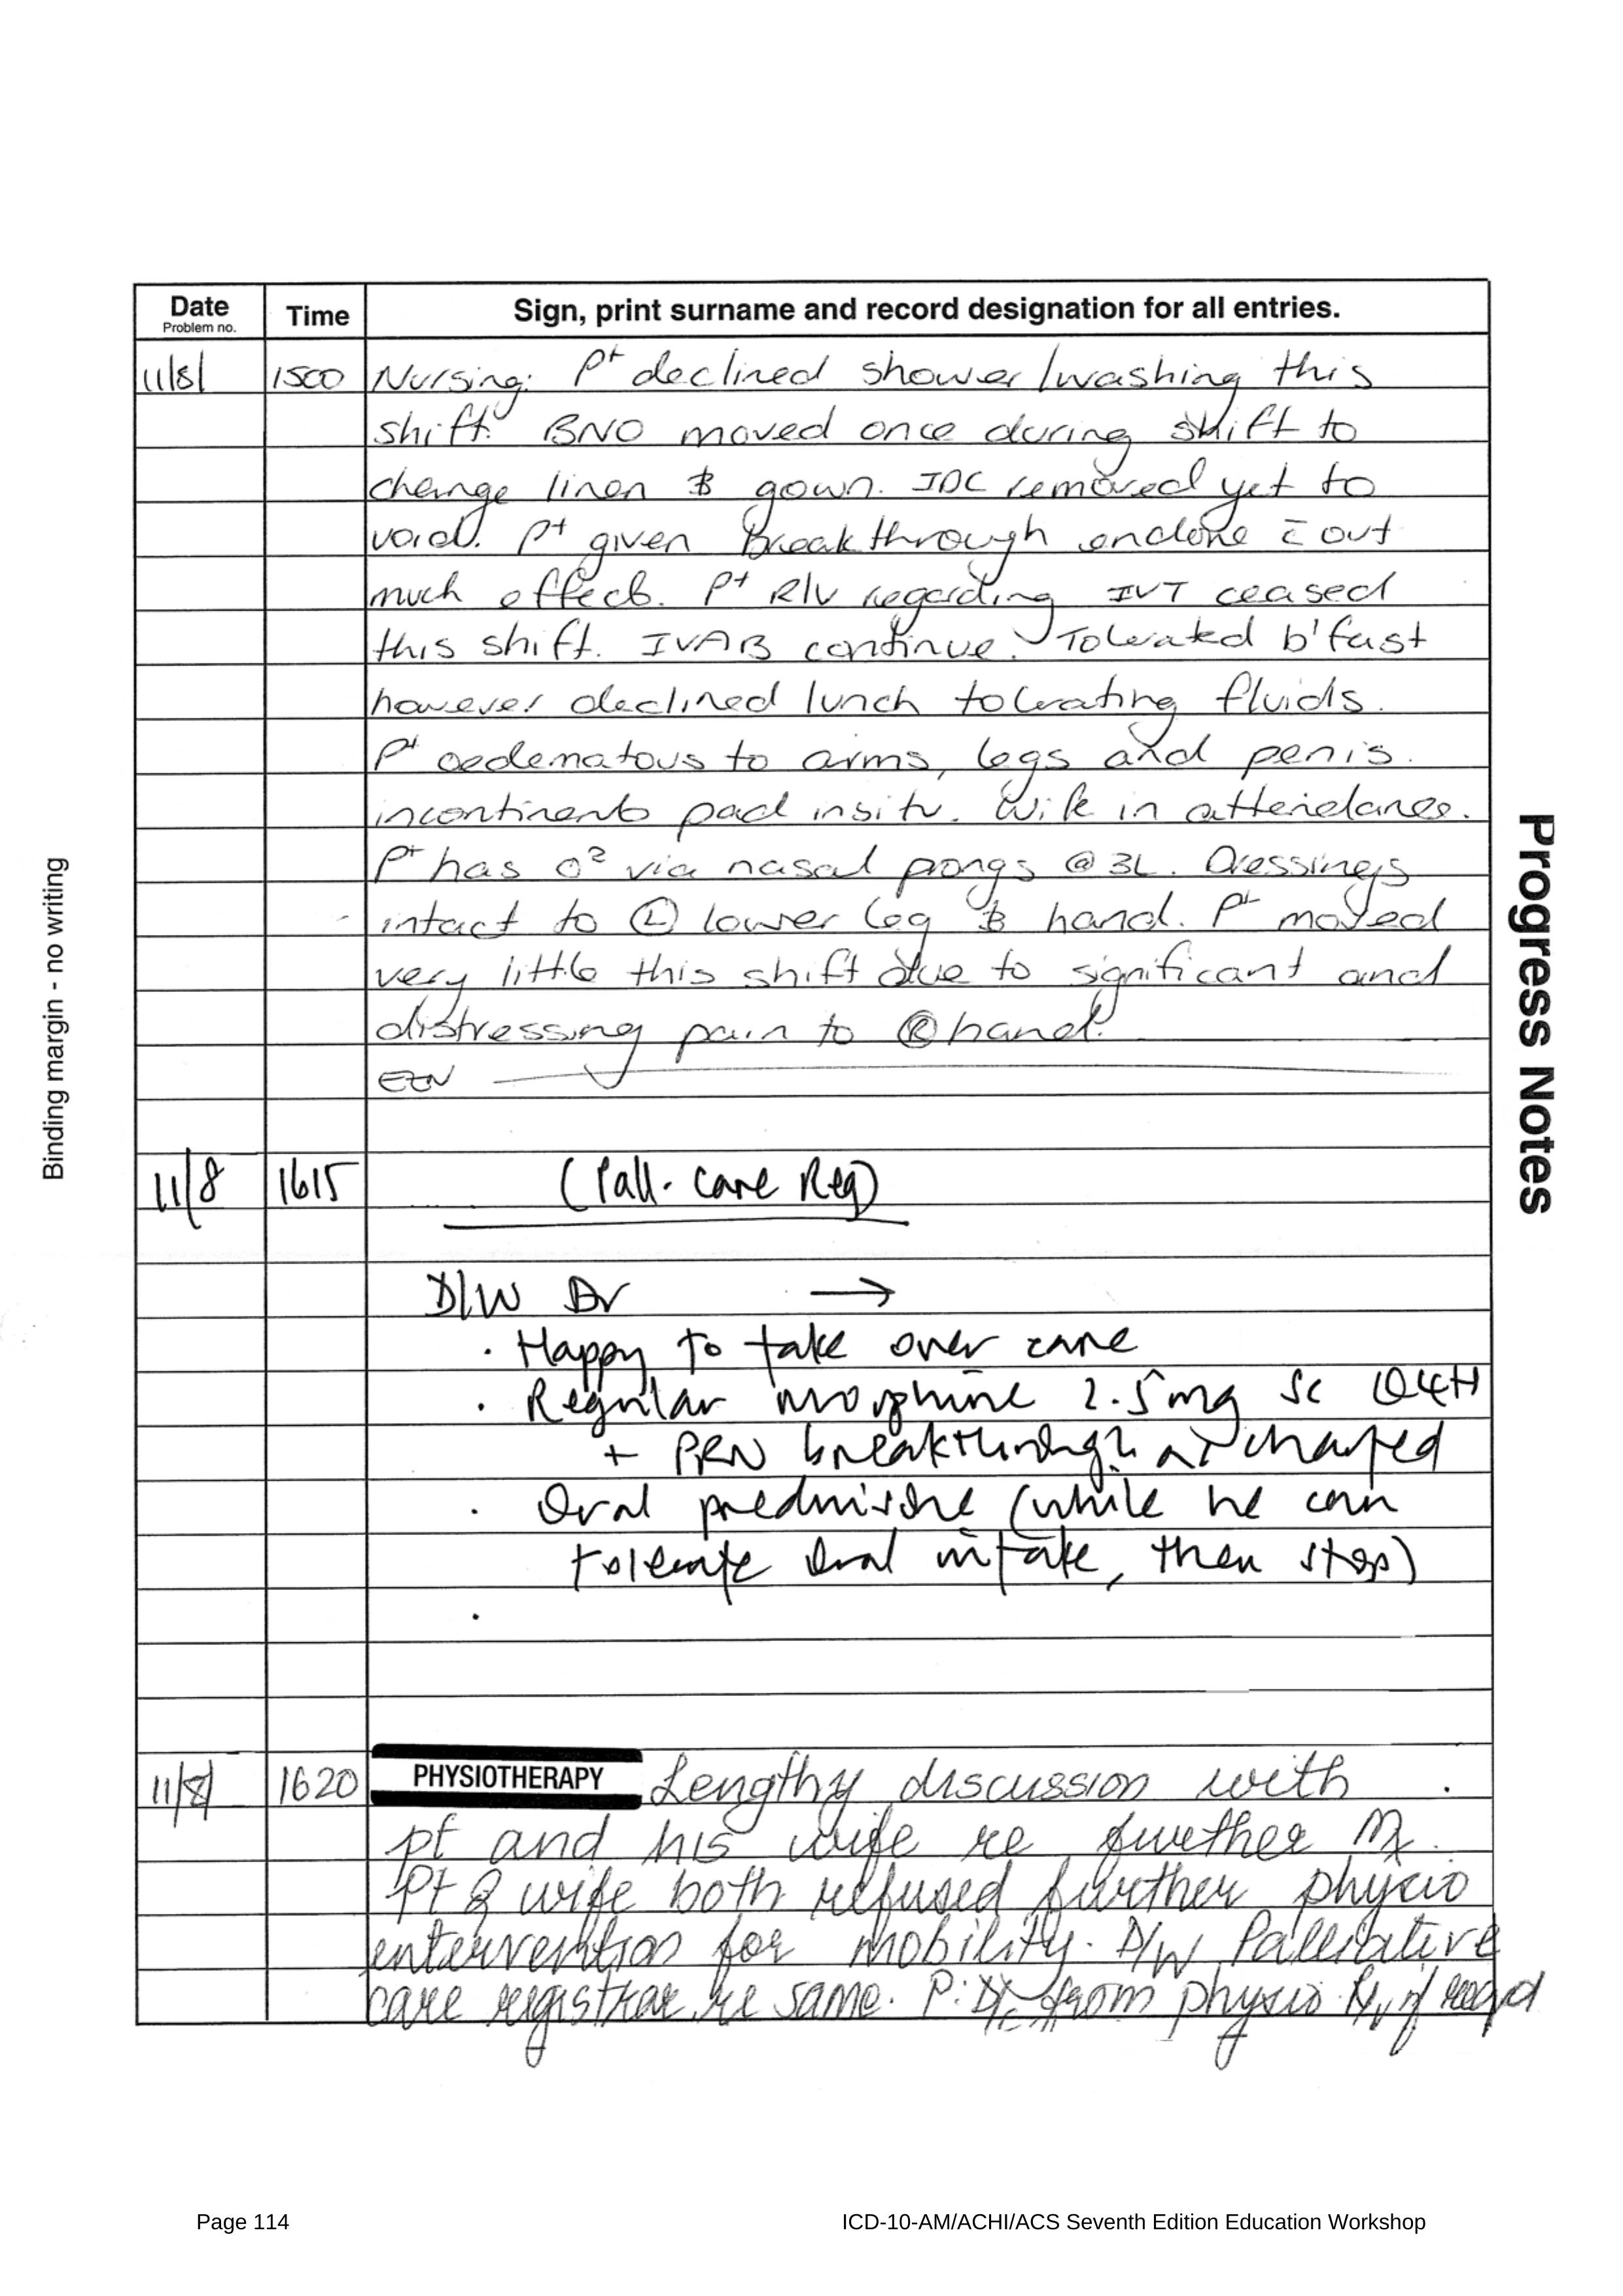 Date
Problem no.
Time
Sign, print surname and record designation for all entries.
11/8/ 1500 Nursing: Pt declined shower/washing this
shift. BNO moved once during shift to
change linen & gown. IDC removed yet to
void. Pt given breakthrough endone c̄ out
much effect. Pt R/V regarding IVT ceased
this shift. IVAB continue. Tolerated b'fast
however declined lunch tolerating fluids.
Pt oedematous to arms, legs and penis.
incontinent pad insitu. Wife in attendance.
Pt has O² via nasal prongs @ 3L. Dressings
intact to Ⓛ lower leg & hand. Pt moved
very little this shift due to significant and
distressing pain to Ⓡ hand.
11/8 1615 (Pall. Care Reg)
D/W Dr →
· Happy to take over care
· Regular morphine 2.5mg SC Q4H
+ PRN breakthrough as charted
· Oral prednisone (while he can
tolerate oral intake, then stop)
·
11/8/ 1620 PHYSIOTHERAPY Lengthy discussion with
pt and his wife re further Mx.
Pt & wife both refused further physio
intervention for mobility. D/W Palliative
care registrar re same. P: D/C from physio. R/v if
Binding margin - no writing
Progress Notes
Page 114
ICD-10-AM/ACHI/ACS Seventh Edition Education Workshop